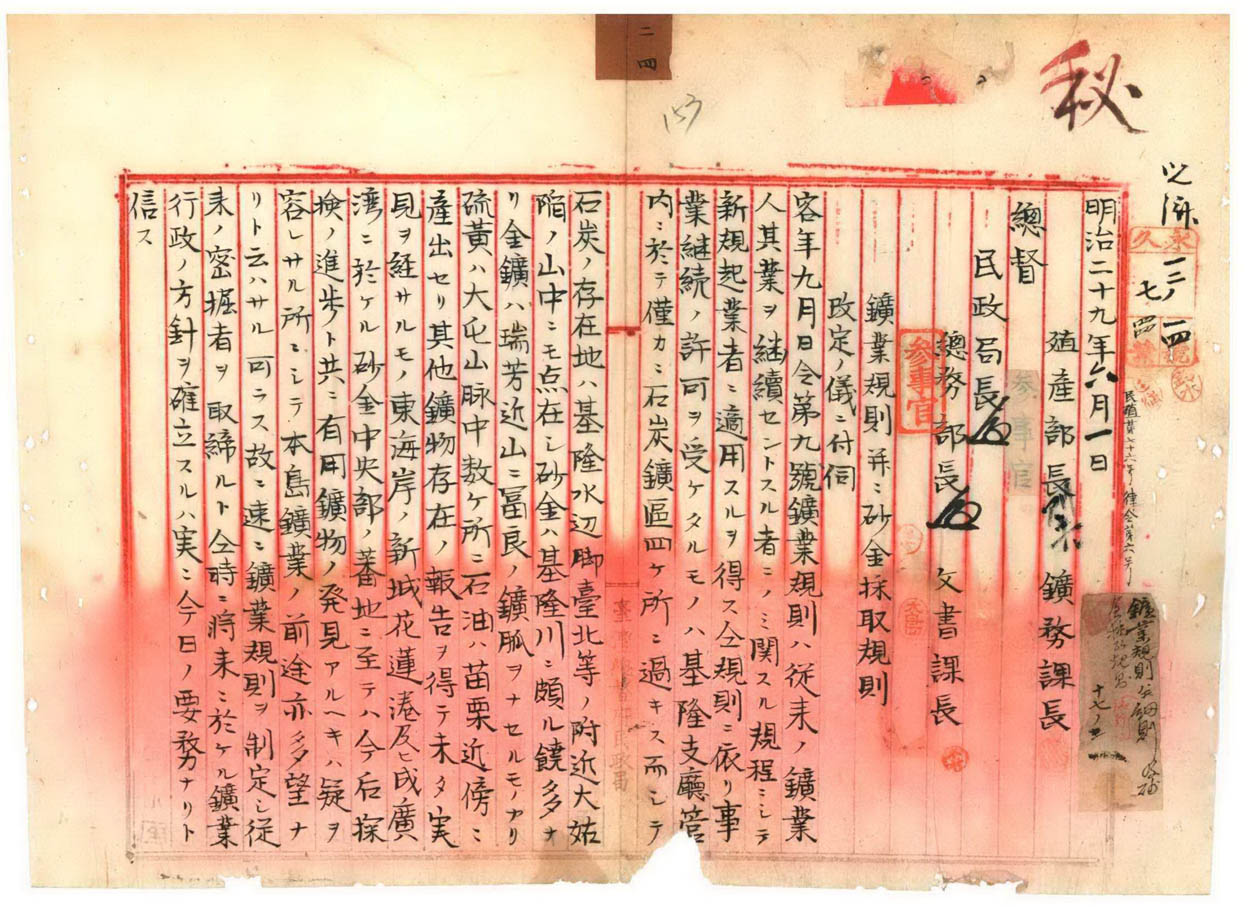 秘
二四
明治二十九年六月一日
殖産部長 鑛務課長
總督
民政局長
總務部長 文書課長
参事官
参事官
鑛業規則并ニ砂金採取規則
改定ノ儀ニ付伺
客年九月日令第九號鑛業規則ハ従来ノ鑛業
人其業ヲ継續セントスル者ニノミ関スル規程ニシテ
新規起業者ニ適用スルヲ得ス仝規則ニ依リ事
業継続ノ許可ヲ受ケタルモノハ基隆支廳管
内ニ於テ僅カニ石炭鑛區四ケ所ニ過キス而シテ
石炭ノ存在地ハ基隆水辺脚臺北等ノ附近大姑
陥ノ山中ニモ点在シ砂金ハ基隆川ニ頗ル饒多ナ
リ金鑛ハ瑞芳近山ニ冨良ノ鑛脈ヲナセルモノアリ
硫黄ハ大屯山脉中数ケ所ニ石油ハ苗栗近傍ニ
産出セリ其他鑛物存在ノ報告ヲ得テ未タ実
見ヲ経サルモノ東海岸ノ新城花蓮港及ヒ成廣
湾ニ於ケル砂金中央部ノ蕃地ニ至テハ今后探
検ノ進歩ト共ニ有用鑛物ノ発見アルヘキハ疑ヲ
容レサル所ニシテ本島鑛業ノ前途亦多望ナ
リト云ハサル可ラス故ニ速ニ鑛業規則ヲ制定シ従
来ノ密掘者ヲ取締ルト仝時ニ将来ニ於ケル鑛業
行政ノ方針ヲ確立スルハ実ニ今日ノ要務ナリト
信ス